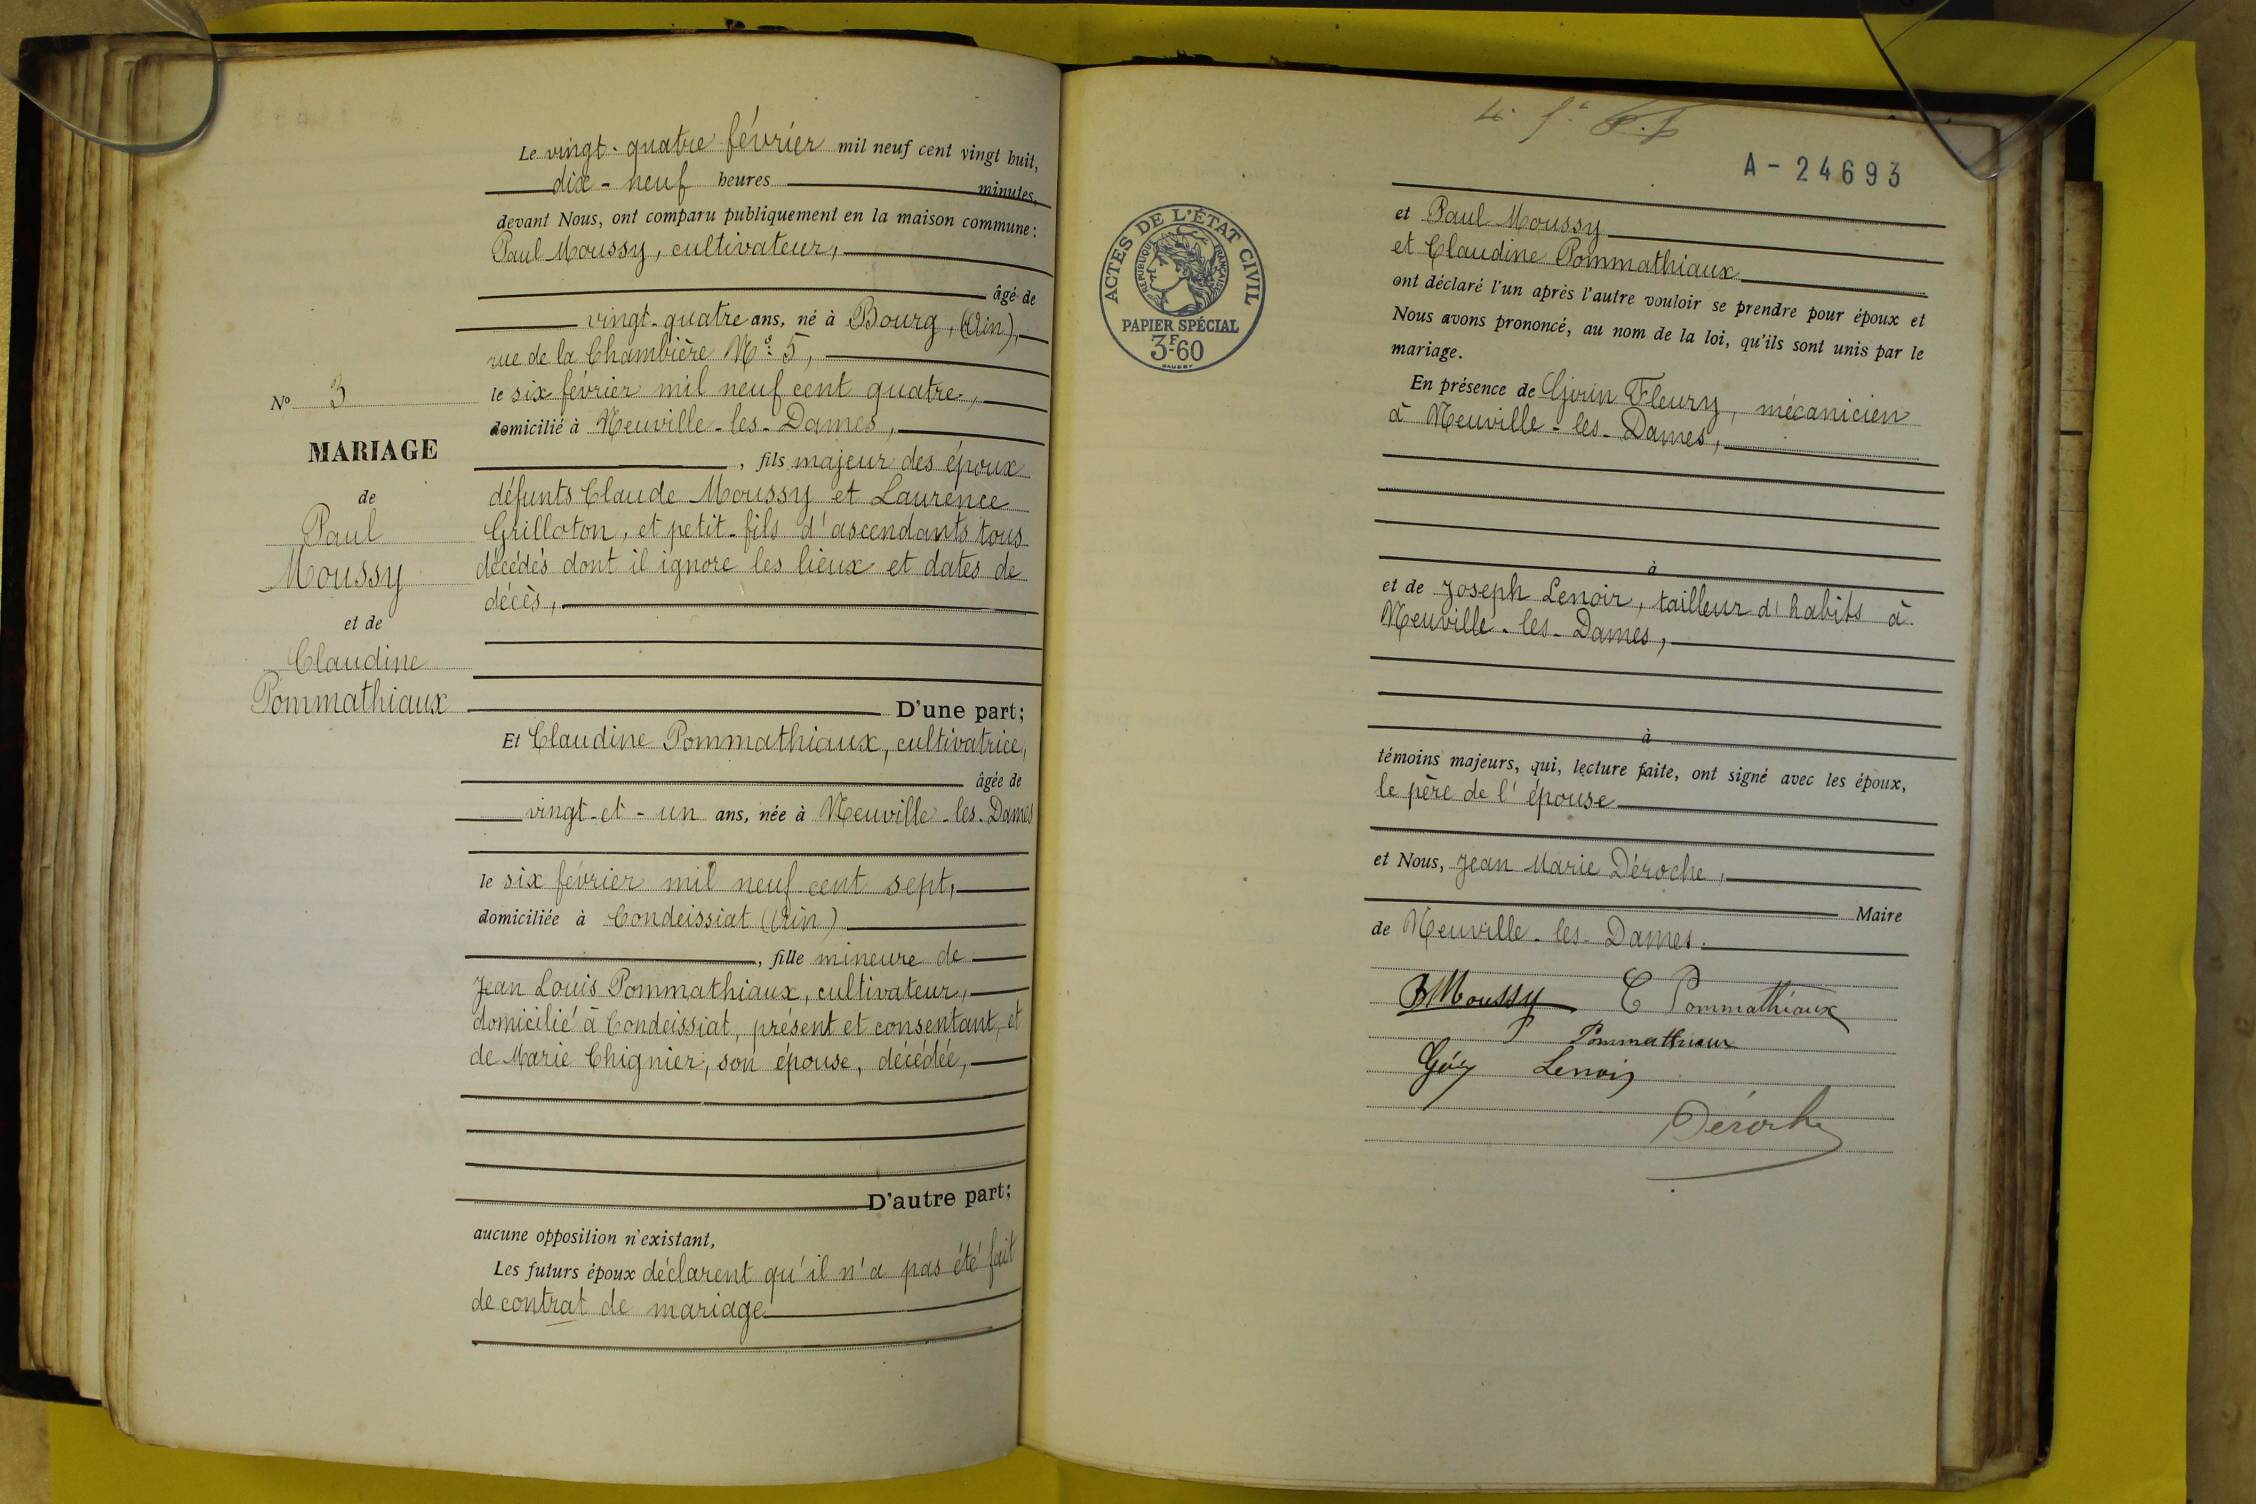 Le vingt-quatre février mil neuf cent vingt huit,
dix-neuf heures minutes,
devant Nous, ont comparu publiquement en la maison commune:
Paul Moussy, cultivateur,
âgé de
vingt-quatre ans, né à Bourg, (Ain),
rue de la Chambière No 5,
le six février mil neuf cent quatre,
domicilié à Neuville-les-Dames,
, fils majeur des époux
défunts Claude Moussy et Laurence
Grilloton, et petit-fils d'ascendants tous
décédés dont il ignore les lieux et dates de
décès,
No 3
MARIAGE
de
Paul
Moussy
et de
Claudine
Pommathiaux
D'une part;
Et Claudine Pommathiaux, cultivatrice,
âgée de
vingt-et-un ans, née à Neuville-les-Dames
le six février mil neuf cent sept,
domiciliée à Condeissiat (Ain)
, fille mineure de
Jean Louis Pommathiaux, cultivateur,
domicilié à Condeissiat, présent et consentant, et
de Marie Chignier, son épouse, décédée,
D'autre part;
aucune opposition n'existant,
Les futurs époux déclarent qu'il n'a pas été fait
de contrat de mariage
A-24693
ACTES DE L'ÉTAT CIVIL
RÉPUBLIQUE FRANÇAISE
PAPIER SPÉCIAL
3F60
et Paul Moussy
et Claudine Pommathiaux
ont déclaré l'un après l'autre vouloir se prendre pour époux et
Nous avons prononcé, au nom de la loi, qu'ils sont unis par le
mariage.
En présence de Fleury, mécanicien
à Neuville-les-Dames,
à
et de Joseph Lenoir, tailleur d'habits à
Neuville-les-Dames,
à
témoins majeurs, qui, lecture faite, ont signé avec les époux,
le père de l'épouse
et Nous, Jean Marie Déroche,
Maire
de Neuville-les-Dames.
P Moussy C Pommathiaux
Pommathiaux
Lenoir
Déroche